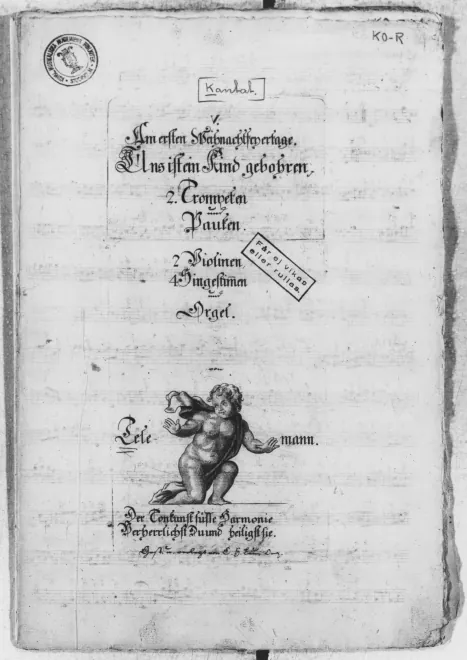 KO-R
Kantat.
V.
Am ersten Weihnachtsfeyertage.
Uns ist ein Kind gebohren.
2. Trompeten
Pauken.
Får ej vikas
eller rullas.
2 Violinen
4 Singestim̄en
Orgel.
von
Tele- mann.
Der Tonkunst füsse Harmonie
Verherrlichst Du und heiligst sie.